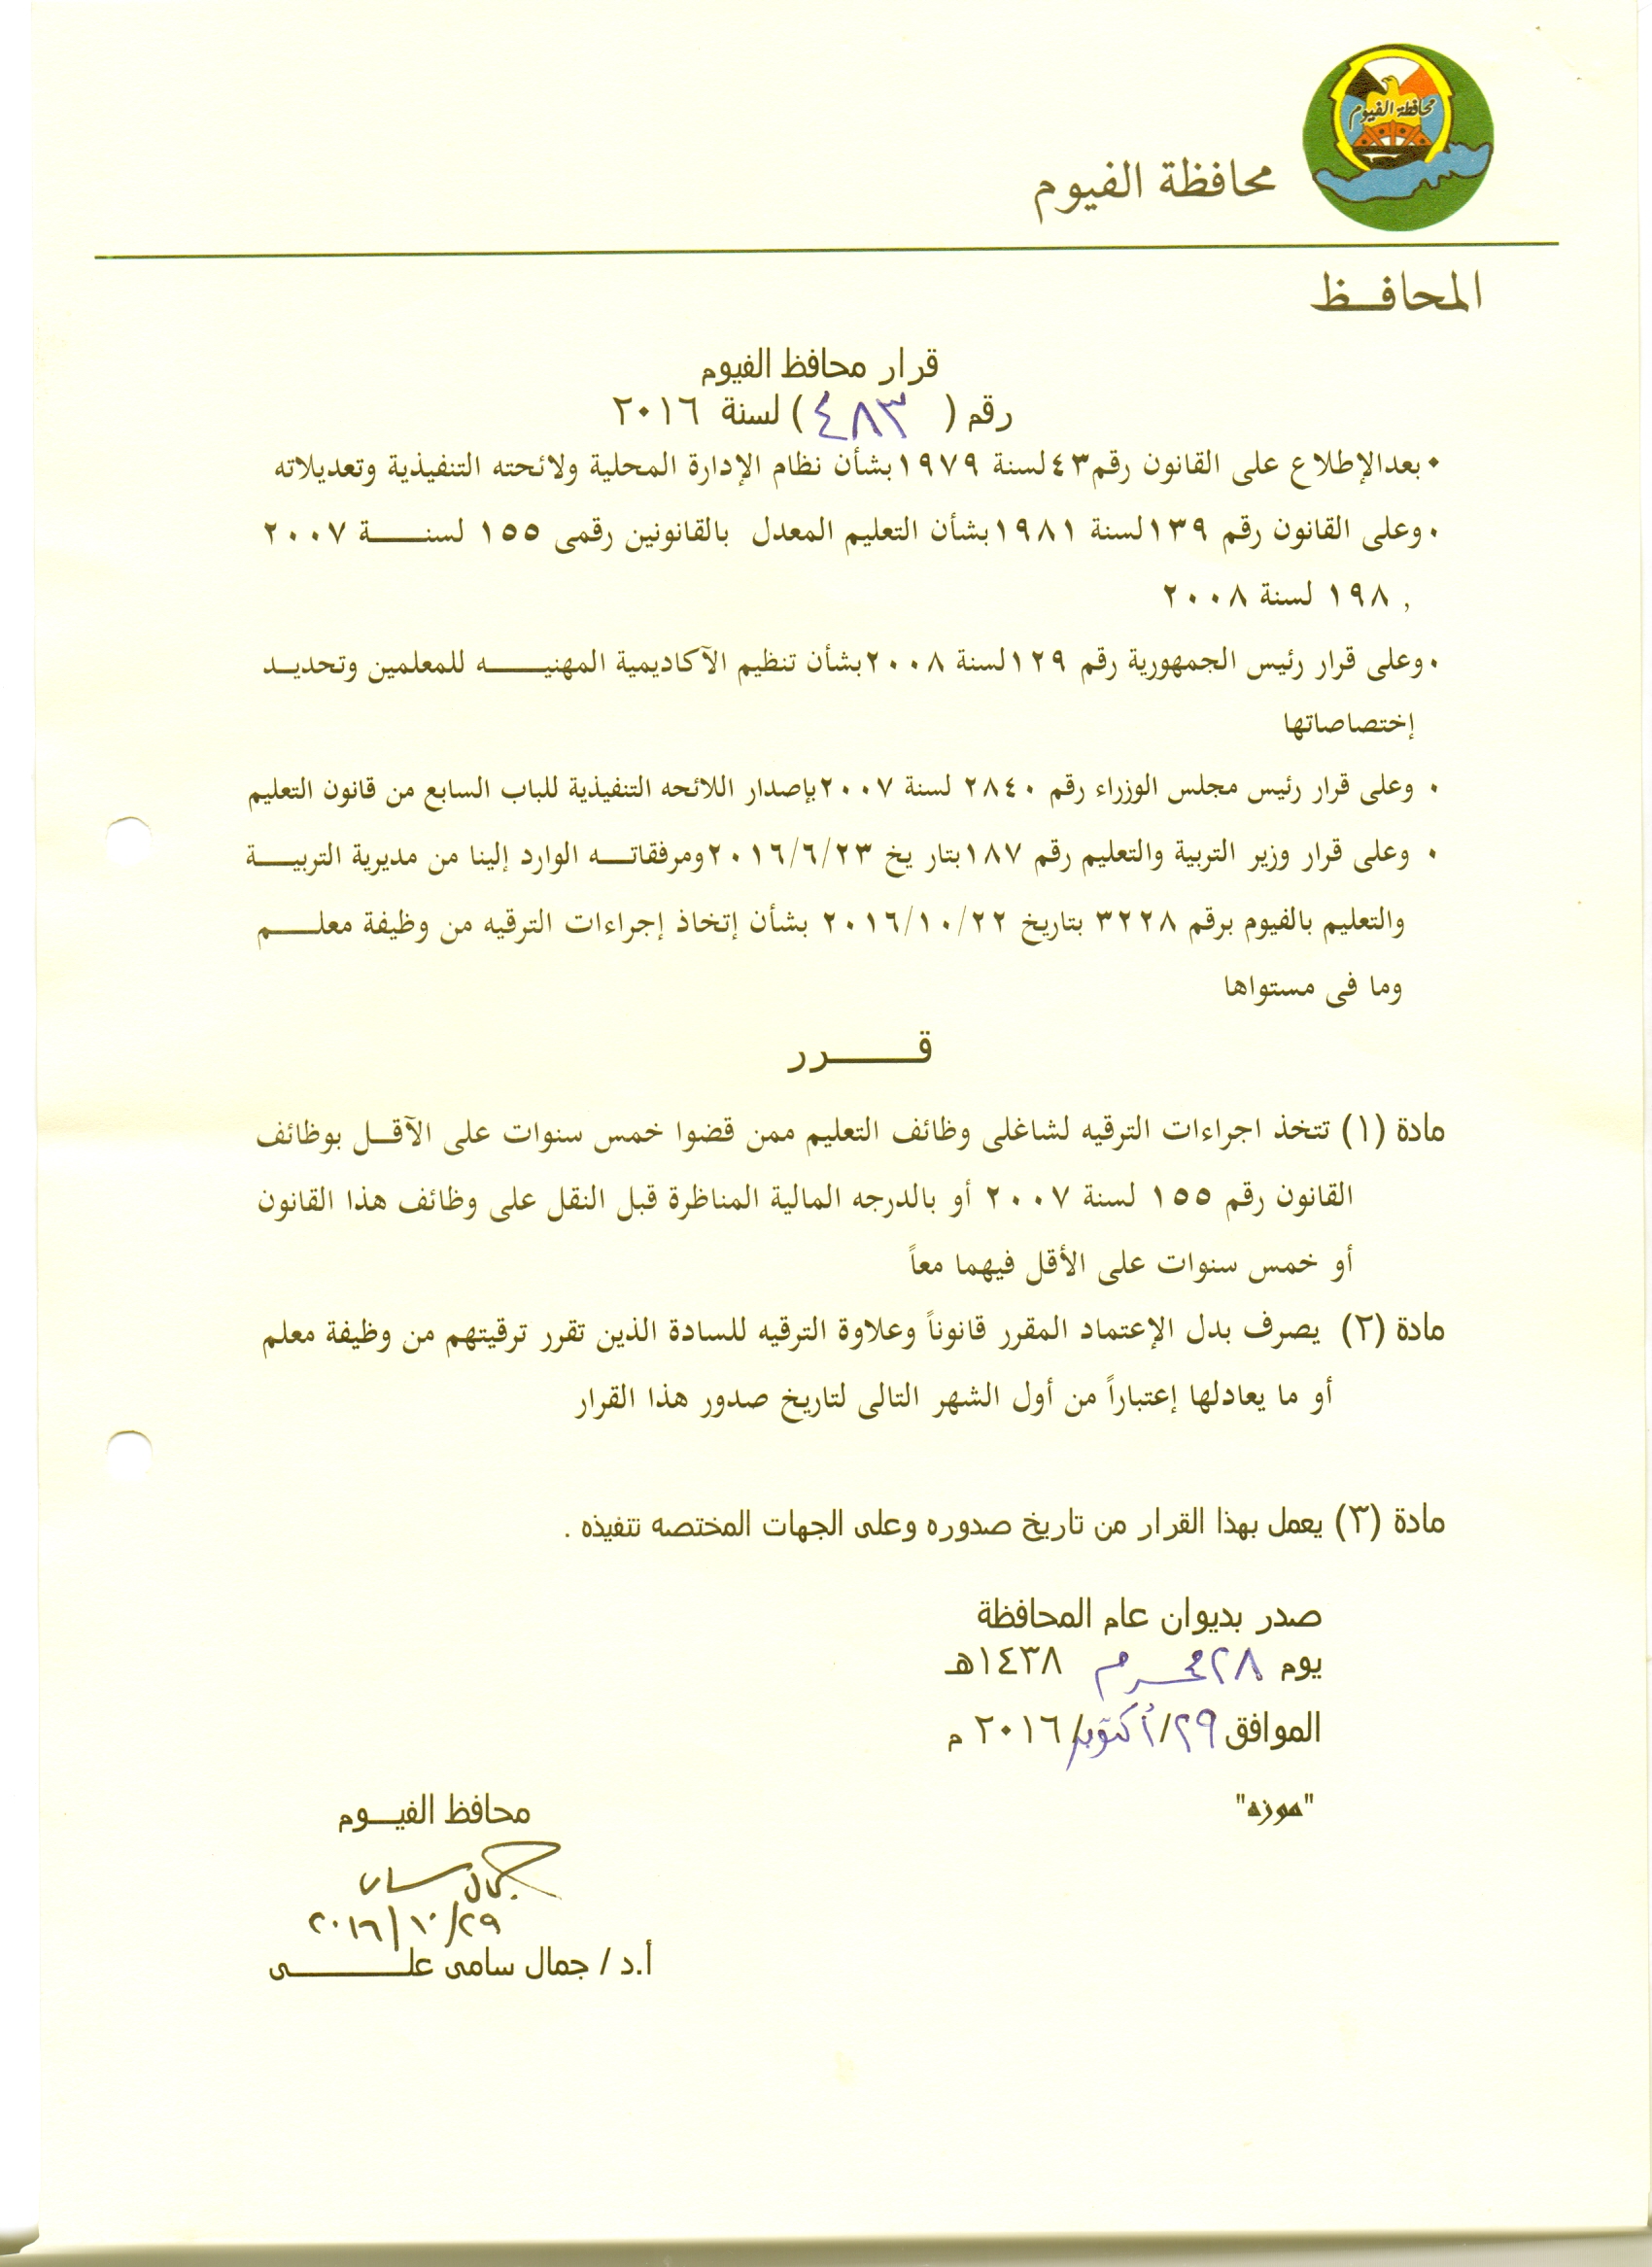 محافظة الفيوم
محافظة الفيوم
المحافــظ
قرار محافظ الفيوم
رقم ( ٤٨٣ ) لسنة ٢٠١٦
• بعدالإطلاع على القانون رقم٤٣لسنة ١٩٧٩بشأن نظام الإدارة المحلية ولائحته التنفيذية وتعديلاته
• وعلى القانون رقم ١٣٩لسنة ١٩٨١بشأن التعليم المعدل بالقانونين رقمى ١٥٥ لسنـــــة ٢٠٠٧
, ١٩٨ لسنة ٢٠٠٨
• وعلى قرار رئيس الجمهورية رقم ١٢٩لسنة ٢٠٠٨بشأن تنظيم الآكاديمية المهنيـــــه للمعلمين وتحديــد
إختصاصاتها
• وعلى قرار رئيس مجلس الوزراء رقم ٢٨٤٠ لسنة ٢٠٠٧بإصدار اللائحه التنفيذية للباب السابع من قانون التعليم
• وعلى قرار وزير التربية والتعليم رقم ١٨٧بتار يخ ٢٠١٦/٦/٢٣ومرفقاتـــه الوارد إلينا من مديرية التربيـــة
والتعليم بالفيوم برقم ٣٢٢٨ بتاريخ ٢٠١٦/١٠/٢٢ بشأن إتخاذ إجراءات الترقيه من وظيفة معلـــــم
وما فى مستواها
قـــــــرر
مادة (١) تتخذ اجراءات الترقيه لشاغلى وظائف التعليم ممن قضوا خمس سنوات على الآقــل بوظائف
القانون رقم ١٥٥ لسنة ٢٠٠٧ أو بالدرجه المالية المناظرة قبل النقل على وظائف هذا القانون
أو خمس سنوات على الأقل فيهما معاً
مادة (٢) يصرف بدل الإعتماد المقرر قانوناً وعلاوة الترقيه للسادة الذين تقرر ترقيتهم من وظيفة معلم
أو ما يعادلها إعتباراً من أول الشهر التالى لتاريخ صدور هذا القرار
مادة (٣) يعمل بهذا القرار من تاريخ صدوره وعلى الجهات المختصه تنفيذه .
صدر بديوان عام المحافظة
يوم ٢٨ محرم ١٤٣٨هـ
الموافق ٢٩/أكتوبر/٢٠١٦ م
"موزه"
محافظ الفيـــوم
جمال سامى
٢٠١٦/١٠/٢٩
أ.د / جمال سامى علـــــــــى